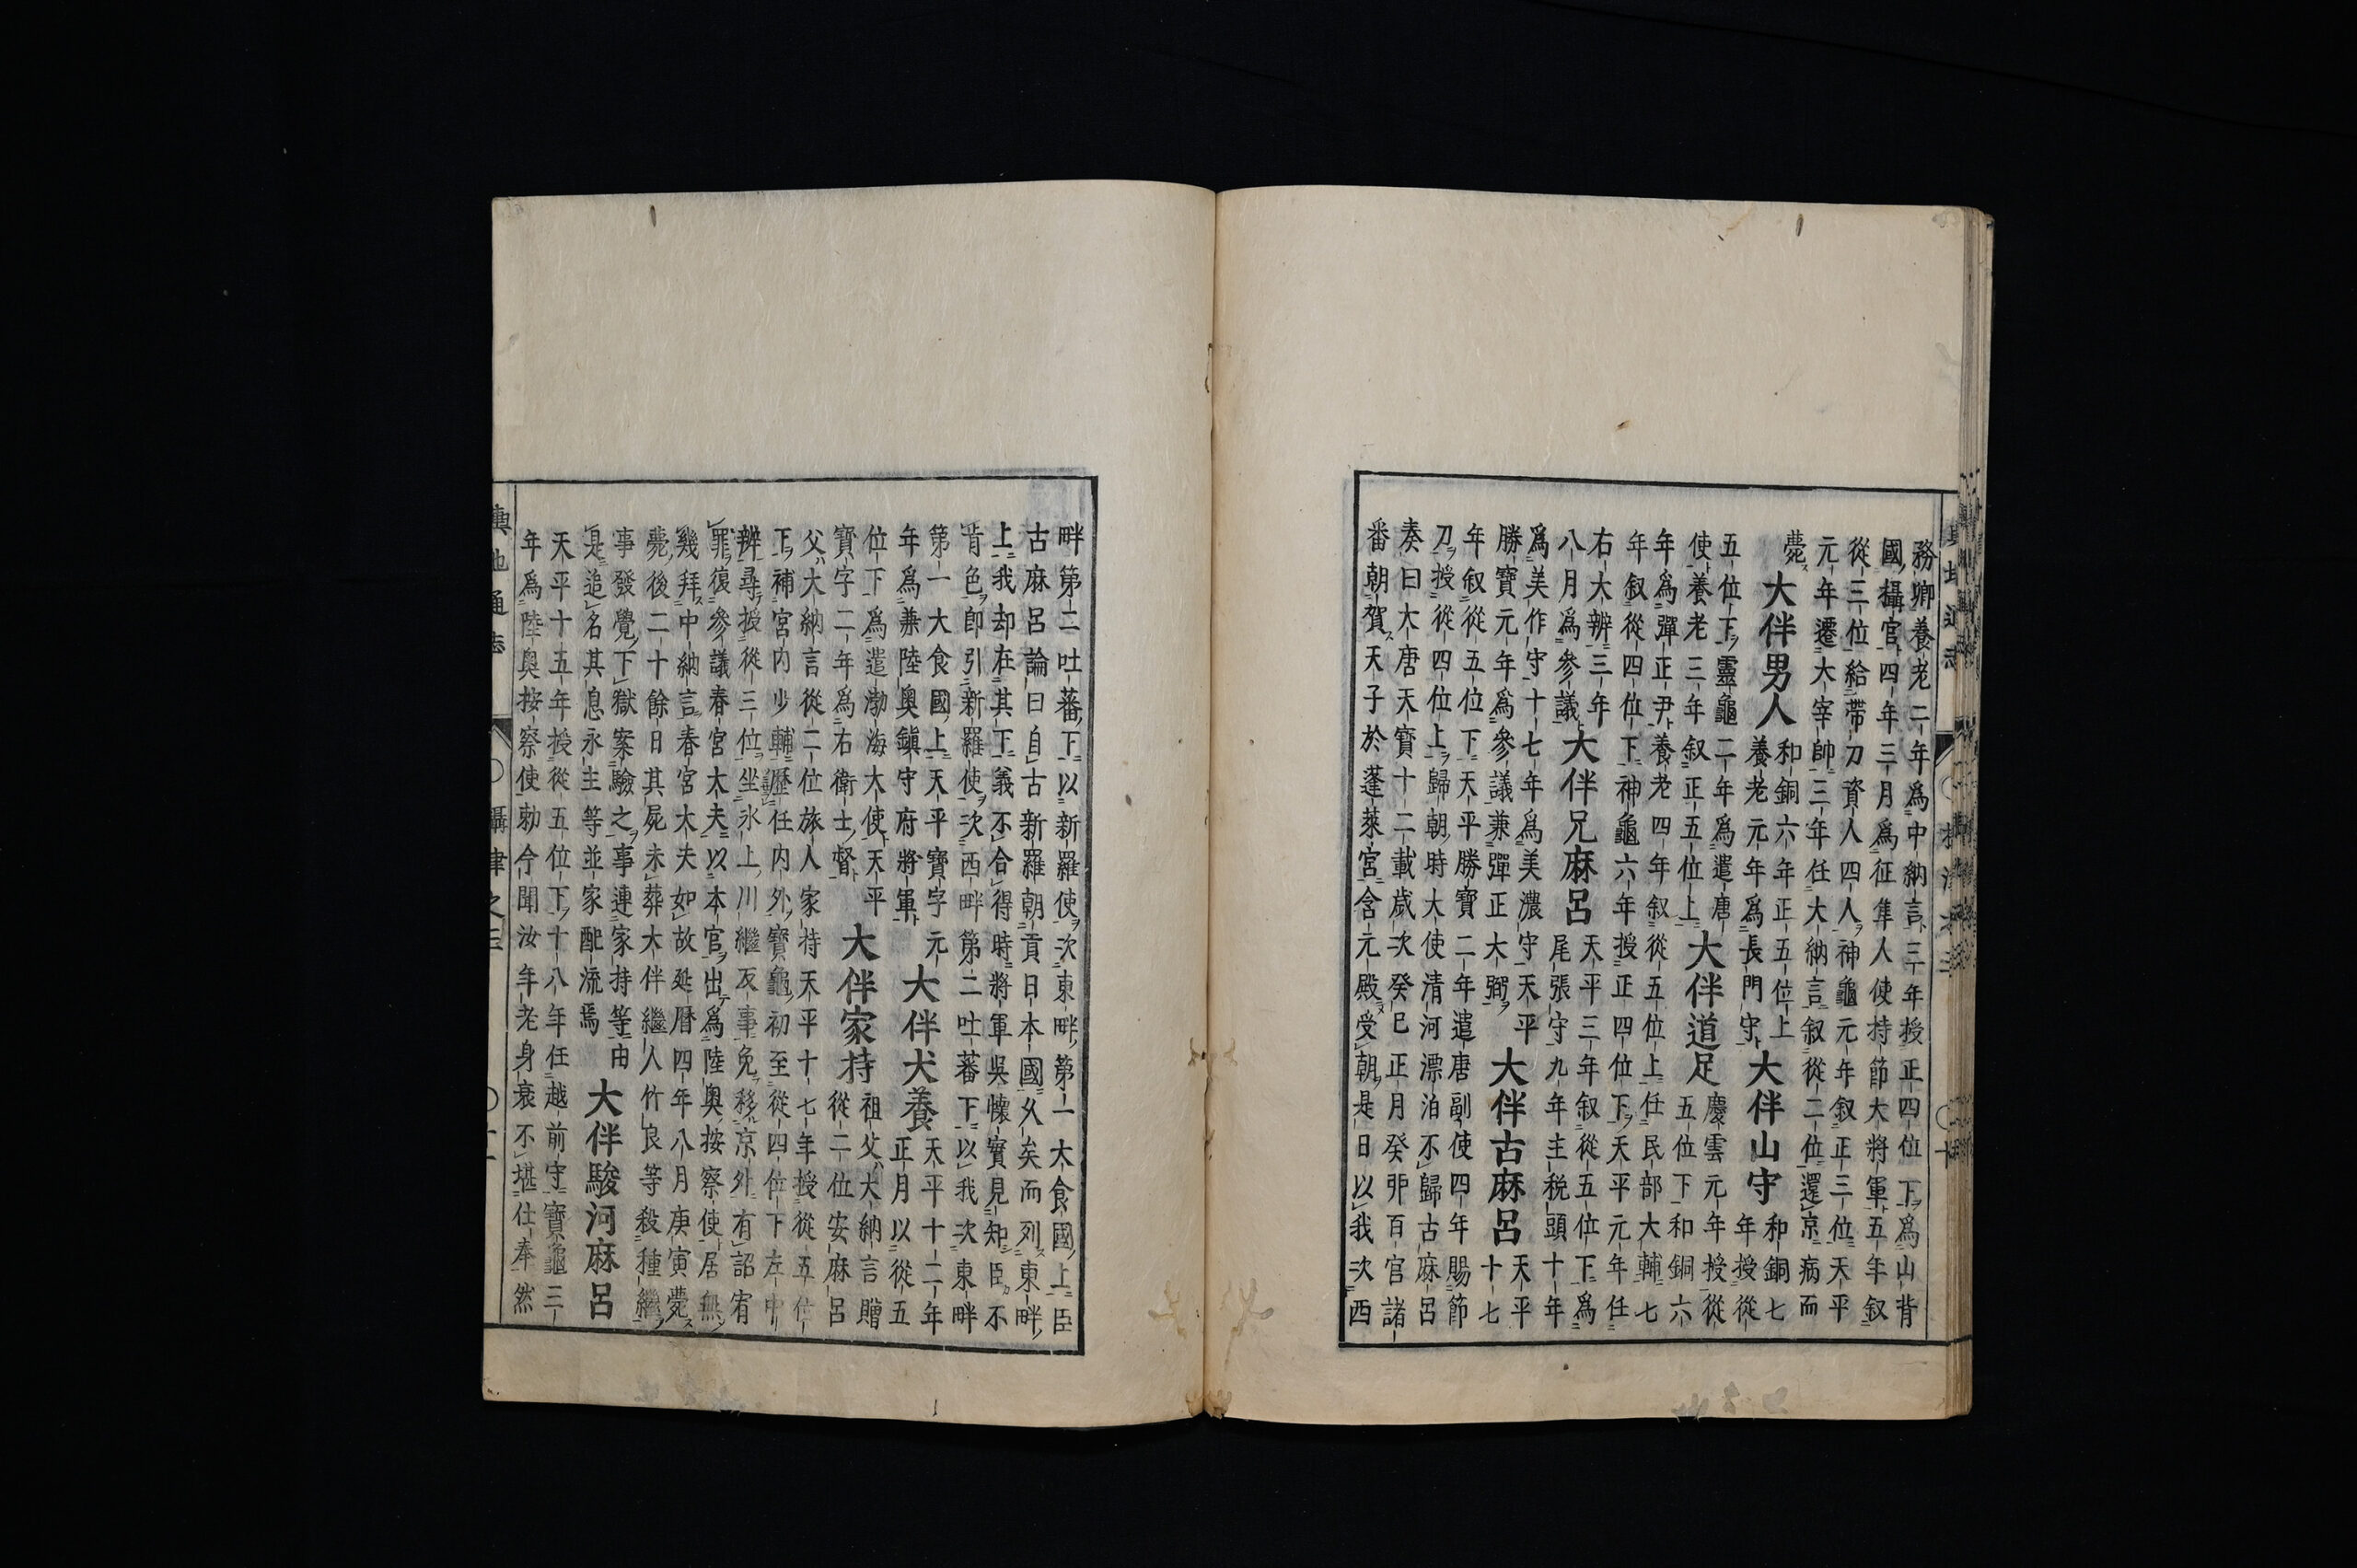 務卿養老二年爲中納言三年授正四位下爲山背
國攝官四年三月爲征隼人使持節大將軍五年叙
從三位給帶刀資人四人神龜元年叙正三位天平
元年遷大宰帥三年任大納言叙從二位還京病而
薨 大伴男人 和銅六年正五位上養老元年爲長門守 大伴山守 和銅七年授從
五位下靈龜二年爲遣唐使養老三年叙正五位上 大伴道足 慶雲元年授從五位下和銅六
年爲彈正尹養老四年叙從五位上任民部大輔七
年叙從四位下神龜六年授正四位下天平元年任
右大辨三年八月爲參議 大伴兄麻呂 天平三年叙從五位下爲尾張守九年主税頭十年
爲美作守十七年爲美濃守天平勝寶元年爲參議兼彈正大弼 大伴古麻呂 天平十七
年叙從五位下天平勝寶二年遣唐副使四年賜節
刀授從四位上歸朝時大使清河漂泊不歸古麻呂
奏曰大唐天寶十二載歳次癸巳正月癸卯百官諸
番朝賀天子於蓬萊宮含元殿受朝是日以我次西
畔第二吐蕃下以新羅使次東畔第一大食國上臣
古麻呂論曰自古新羅朝貢日本國久矣而列東畔
上我却在其下義不合得時將軍吳懷寶見知臣不
肯色即引新羅使次西畔第二吐蕃下以我次東畔
第一大食國上天平寶字元年爲兼陸奥鎭守府將軍 大伴犬養 天平十二年正月以從五
位下爲遣渤海大使天平寶字二年爲右衛士督 大伴家持 祖父大納言贈從二位安麻呂
父大納言從二位旅人家持天平十七年授從五位
下補宮内少輔歴任内外寶龜初至從四位下左中
辨尋授從三位坐氷上川繼反事免移京外有詔宥
罪復參議春宮大夫以本官出爲陸奥按察使居無
幾拜中納言春宮大夫如故延暦四年八月庚寅薨
薨後二十餘日其屍未葬大伴繼人竹良等殺種繼
事發覺下獄案驗之事連家持等由是追名其息永主等並家配流焉 大伴駿河麻呂
天平十五年授從五位下十八年任越前守寶龜三
年爲陸奥按察使勅今聞汝年老身衰不堪仕奉然
輿地通志 攝津之三 十一